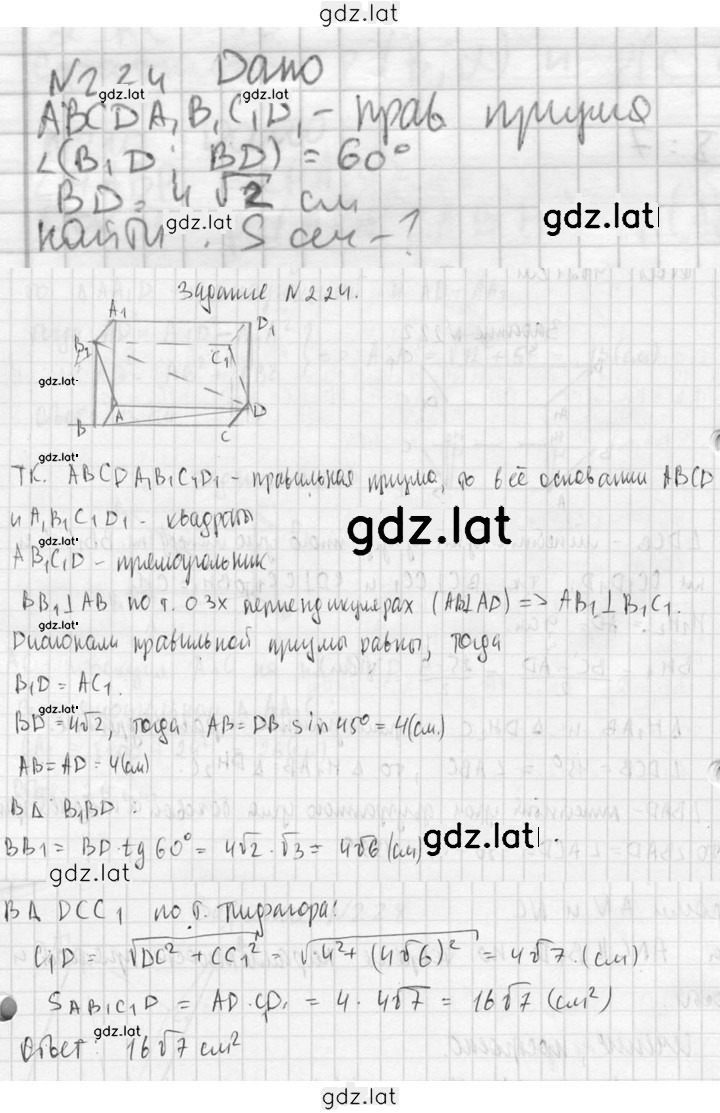 gdz.lat
N224 Дано
gdz.lat
ABCDA₁B₁C₁D₁ - прав призма
∠(B₁D ; BD) = 60°
BD = 4√2 см
gdz.lat
найти : S сеч - ?
gdz.lat
Задание N224.
A₁
D₁
B₁
C₁
gdz.lat
A
D
B
C
gdz.lat
Т.К. ABCDA₁B₁C₁D₁ - правильная призма, то в её основании ABCD
и A₁B₁C₁D₁ - квадраты
gdz.lat
AB₁C₁D - прямоугольник
gdz.lat
BB₁⊥AB по т. о 3х перпендикулярах (AB⊥AD) => AB₁⊥B₁C₁.
gdz.lat
Диагонали правильной призмы равны, тогда
B₁D = AC₁.
gdz.lat
BD = 4√2, тогда AB = DB sin 45° = 4(см.)
AB = AD = 4(см)
gdz.lat
В Δ B₁BD :
BB₁ = BD·tg 60° = 4√2 · √3 = 4√6 (см)
gdz.lat
gdz.lat
В Δ DCC₁ по т. Пифагора:
C₁D = √DC² + CC₁² = √4² + (4√6)² = 4√7 (см)
gdz.lat
S AB₁C₁D = AD · C₁D₁ = 4 · 4√7 = 16√7 (см²)
gdz.lat
Ответ: 16√7 см²
gdz.lat